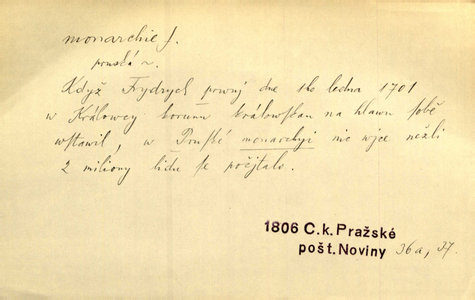 monarchie f.
pruská ~.
Když Frydrych prwnj dne 18ho ledna 1701
w Králowcy korunu králowskau na hlawu sobě
wstawil, w Pruské monarchyi nic wjce nežli
2 miliony lidu se počjtalo.
1806 C.k.Pražské
pošt.Noviny 36a, 37.